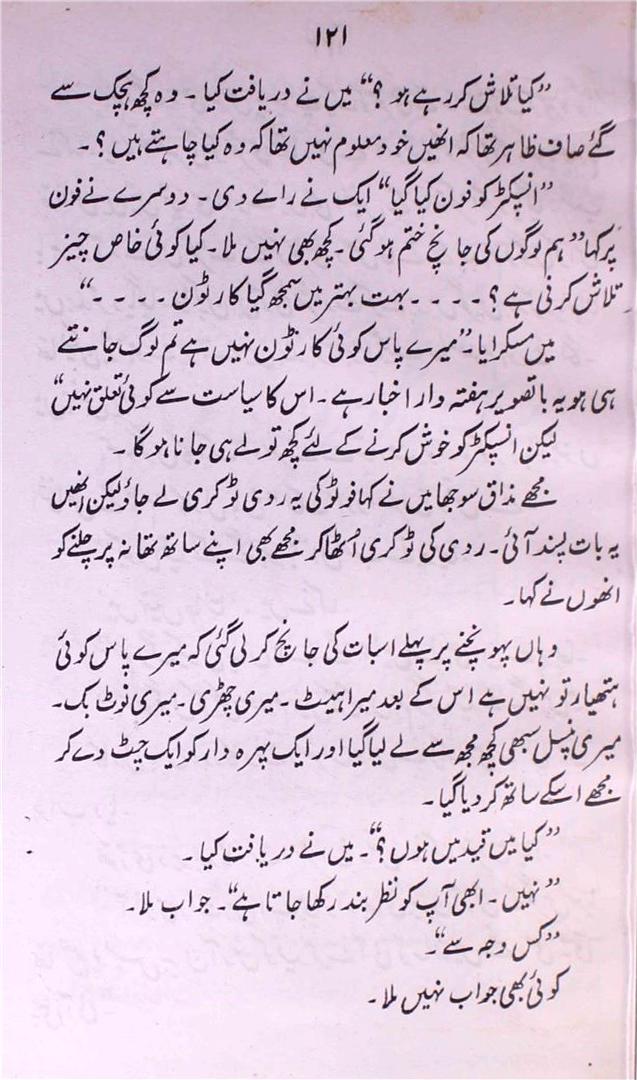 ۱۲۱
”کیا تلاش کر رہے ہو؟“ میں نے دریافت کیا۔ وہ کچھ ہچک سے
گئے صاف ظاہر تھا کہ انھیں خود معلوم نہیں تھا کہ وہ کیا چاہتے ہیں؟۔
”انسپکٹر کو فون کیا گیا“ ایک نے راے دی۔ دوسرے نے فون
پر کہا ”ہم لوگوں کی جانچ ختم ہوگئی۔ کچھ بھی نہیں ملا۔ کیا کوئی خاص چیز
تلاش کرنی ہے؟ ۔۔۔۔ بہت بہتر میں سمجھ گیا کارٹون ۔۔۔۔“
میں مسکرایا۔ ”میرے پاس کوئی کارٹون نہیں ہے تم لوگ جانتے
ہی ہو یہ باتصویر ہفتہ وار اخبار ہے۔ اس کا سیاست سے کوئی تعلق نہیں“
لیکن انسپکٹر کو خوش کرنے کے لئے کچھ تو لے ہی جانا ہوگا۔
مجھے مذاق سوجھا میں نے کہا فوٹو کی یہ ردی ٹوکری لے جاؤ لیکن انھیں
یہ بات پسند آئی۔ ردی کی ٹوکری اُٹھا کر مجھے بھی اپنے ساتھ تھانہ پر چلنے کو
انھوں نے کہا۔
وہاں پہونچنے پر پہلے اسبات کی جانچ کر لی گئی کہ میرے پاس کوئی
ہتھیار تو نہیں ہے اس کے بعد میرا ہیٹ۔ میری چھڑی۔ میری نوٹ بک۔
میری پنسل سبھی کچھ مجھ سے لے لیا گیا اور ایک پہرہ دار کو ایک چٹ دے کر
مجھے اسکے ساتھ کر دیا گیا۔
”کیا میں قید میں ہوں؟“۔ میں نے دریافت کیا۔
”نہیں۔ ابھی آپ کو نظر بند رکھا جاتا ہے“۔ جواب ملا۔
”کس وجہ سے“۔
کوئی بھی جواب نہیں ملا۔